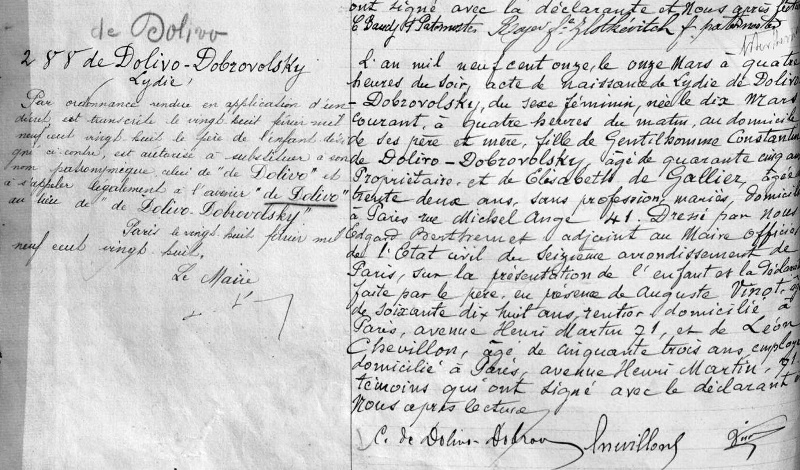 de Dolivo
288 de Dolivo-Dobrovolsky
Lydie
Par ordonnance rendue en application d'un
décret, est transcrit le vingt huit février mil
neuf cent vingt huit le père de l'enfant dési
gné ci-contre, est autorisé à substituer à son
nom patronymique, celui de "de Dolivo" et
à s'appeler légalement à l'avenir "de Dolivo"
au lieu de "de Dolivo-Dobrovolsky"
Paris le vingt huit février mil
neuf cent vingt huit.
Le Maire
ont signé avec la déclarante et Nous après
L'an mil neuf cent onze, le onze Mars à quatre
heures du soir, acte de naissance de Lydie de Dolivo
-Dobrovolsky, du sexe féminin, née le dix Mars
courant, à quatre heures du matin, au domicile
de ses père et mère, fille de Gentilhomme Constantin
de Dolivo-Dobrovolsky, âgé de quarante cinq ans
Propriétaire, et de Elisabeth de Gallier, âgée de
trente deux ans, sans profession, mariés, domiciliés
à Paris rue Michel Ange 41. Dressé par Nous
Edgard Berthemet adjoint au Maire Officier
de l'Etat civil du seizième arrondissement de
Paris, sur la présentation de l'enfant et la déclaration
faite par le père, en présence de Auguste Vinot, âgé
de soixante dix huit ans, rentier domicilié à
Paris, avenue Henri Martin 71, et de Léon
Chevillon, âgé de cinquante trois ans employé
domicilié à Paris, avenue Henri Martin, 71
témoins qui ont signé avec le déclarant
Nous après lecture
C. de Dolivo-Dobrov Chevillon